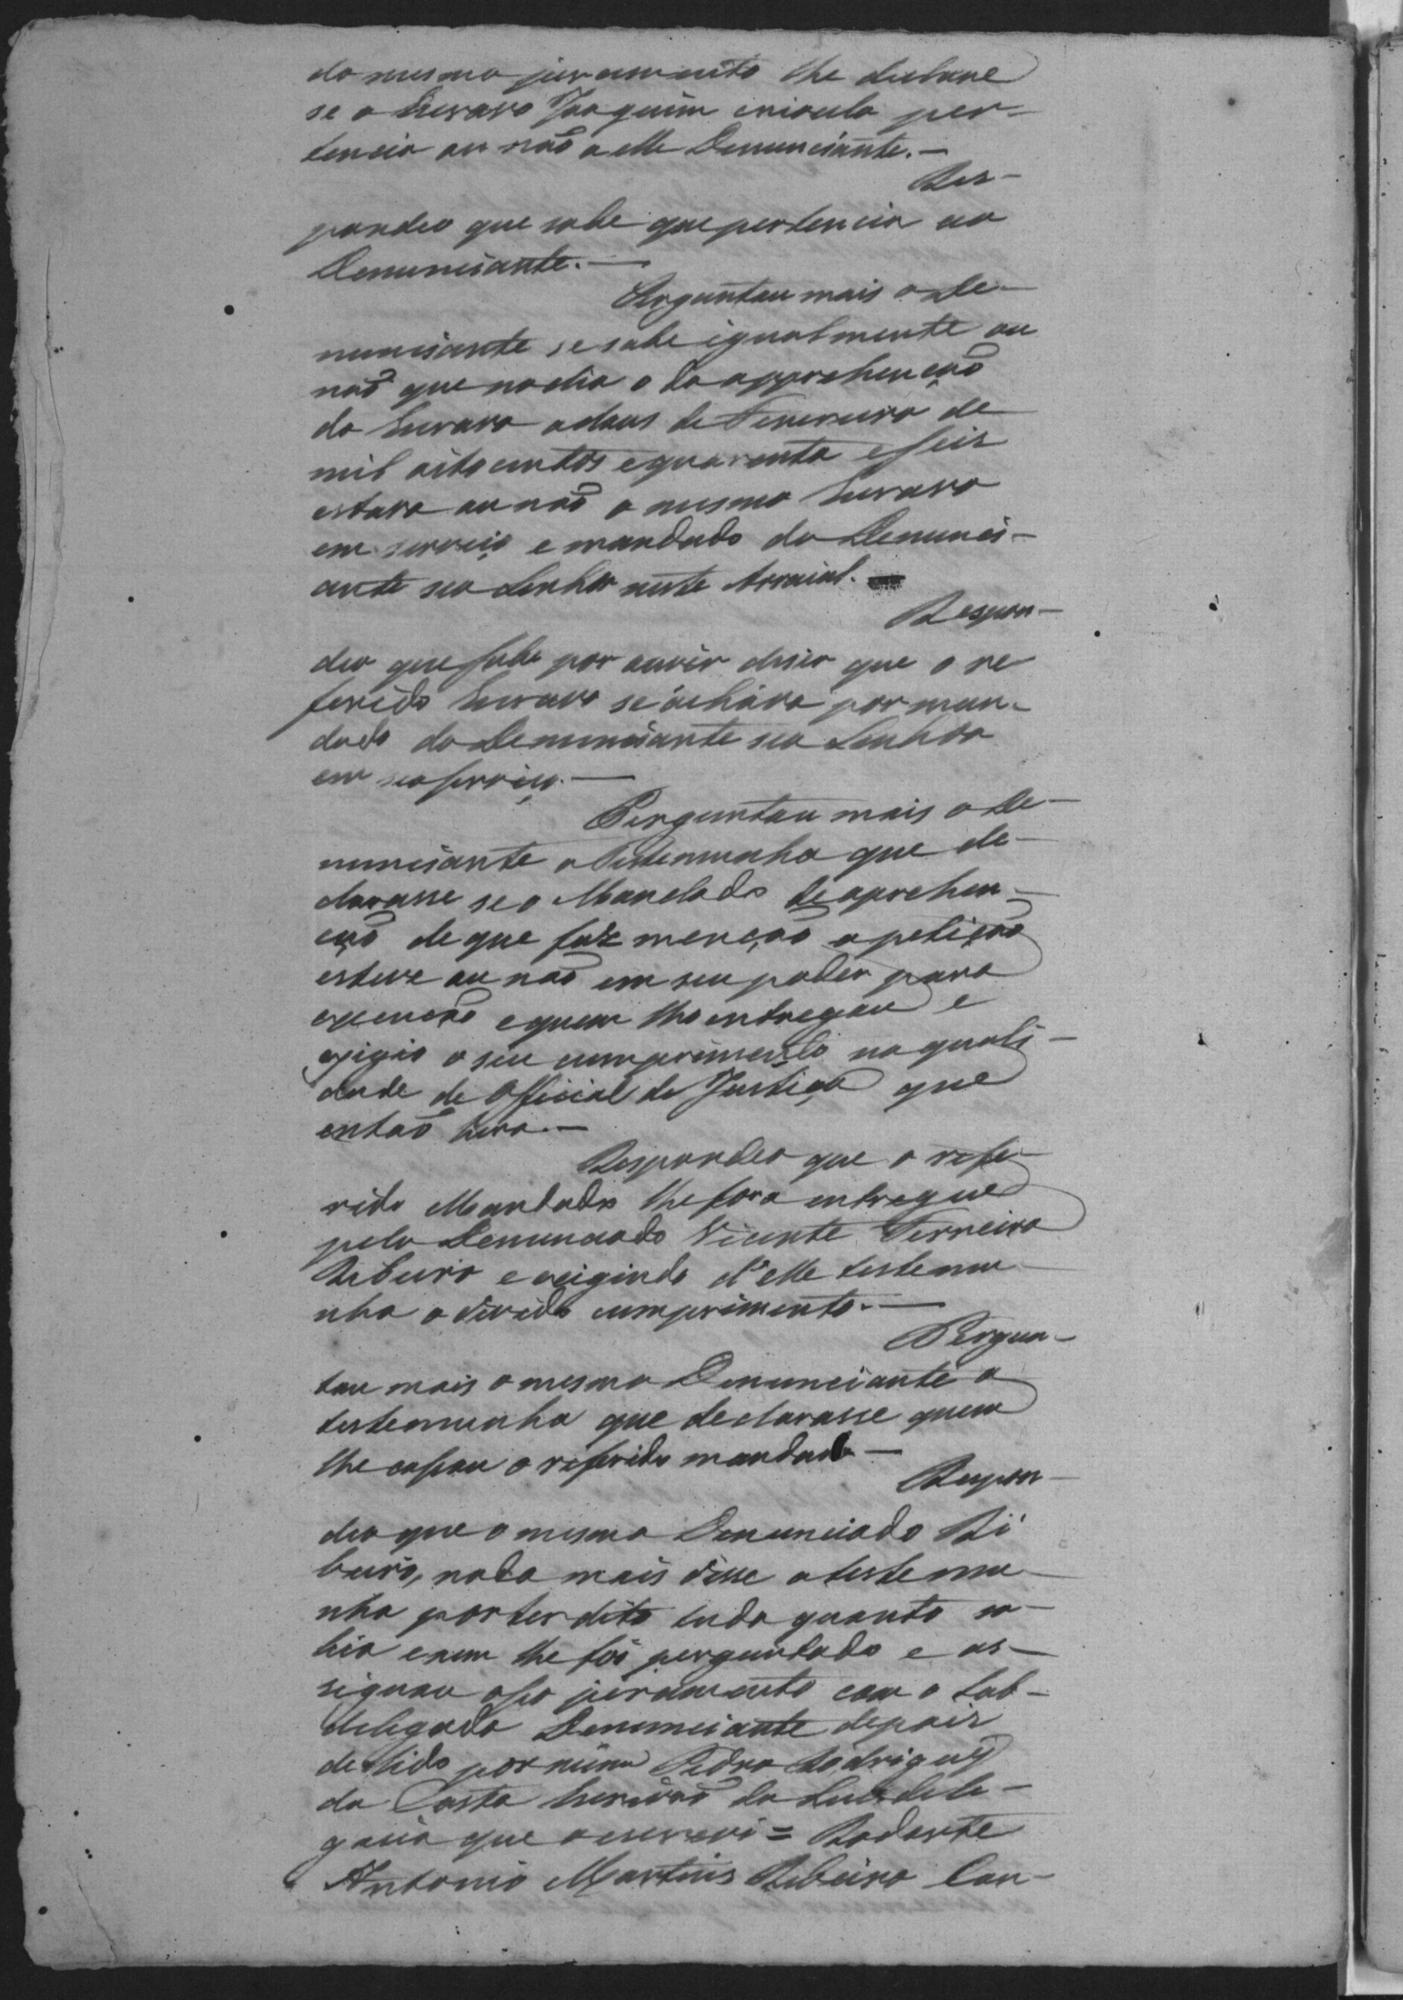 do mesmo juramento lhe declare
se o Escravo Joaquim crioulo per-
tencia ou não a elle Denunciante.—
Res-
pondeo que sabe que pertencia ao
Denunciante.—
Perguntou mais o De-
nunciante se sabe igualmente ou
não que no dia o da apprehenção
do Escravo a dous de Fevereiro de
mil oito centos e quarenta e seis
estava ou não o mesmo Escravo
em serviço e mandado do Denunci-
ante seo Senhor neste Arraial.
Respon-
deo que sabe por ouvir diser que o re
ferido Escravo se achava por man-
dado do Denunciante seo Senhor
em seo serviço.—
Perguntou mais o De-
nunciante a Testemunha que de-
clarasse se o Mandado de aprehen-
ção de que faz menção a petição
esteve ou não em seu poder para
execução e quem lho entregou e
exigio o seu cumprimento na quali-
dade de Official de Justiça que
então hera.—
Respondeo que o refe-
rido Mandado lhe fora entregue
pelo Denunciado Vicente Ferreira
Ribeiro e exigindo d'elle testemu-
nha o devido cumprimento.—
Pergun-
tou mais o mesmo Denunciante a
testemunha que declarasse quem
lhe copiou o referido mandado—
Respon-
deo que o mesmo Denunciado Ri
beiro, nada mais disse a testemu-
nha por ter dito tudo quanto sa-
bia e nem lhe foi perguntado e as-
signou o seo juramento com o Sub-
delegado Denunciante depois
de lido por mim Pedro Rodrigues
da Costa Escrivão da Subdele-
gacia que o escrevi = Rodarte
Antonio Martins Ribeiro Con-